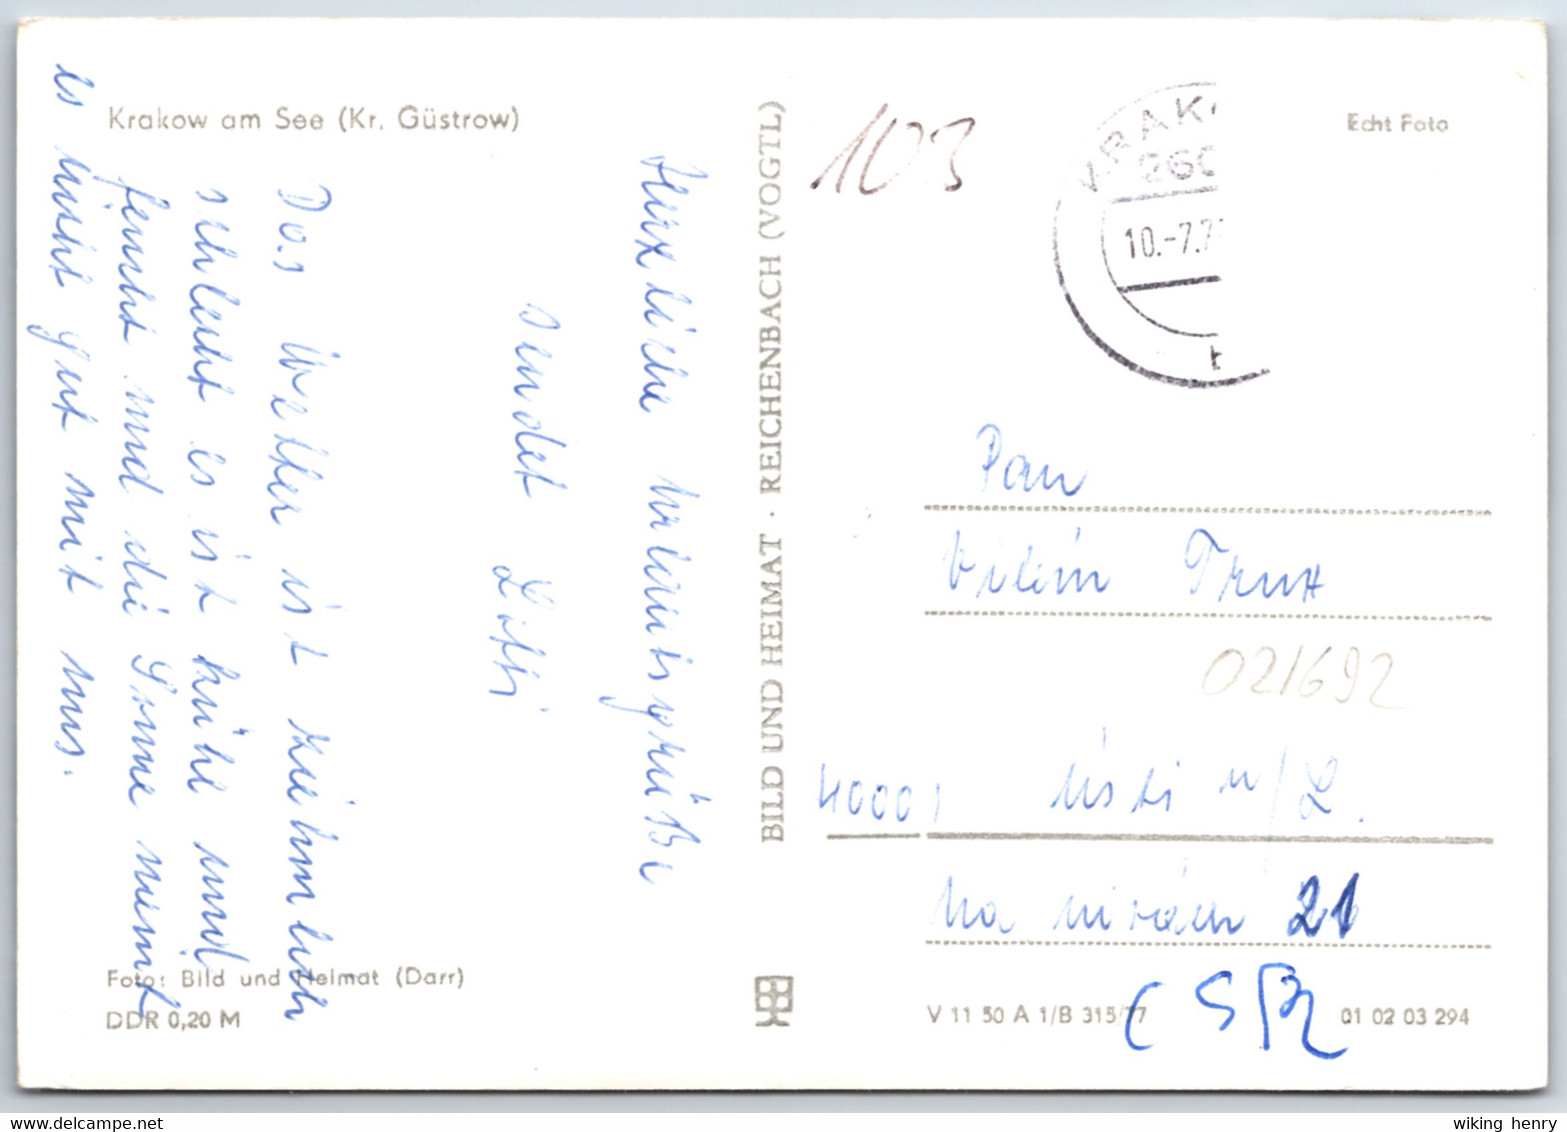 Krakow am See (Kr. Güstrow)
Herzliche Urlaubsgrüße
sendet Litti
Das Wetter ist ziemlich
schlecht es ist kühl und
feucht und die Sonne meint
es nicht gut mit uns.
Foto: Bild und Heimat (Darr)
DDR 0,20 M
BILD UND HEIMAT · REICHENBACH (VOGTL)
103
KRAK
260
10.-7.7
t
Echt Foto
Pan
Vilém Trux
021692
40001 Ústi n/L.
Na nivách 21
ČSR
V 11 50 A 1/B 315/77
01 02 03 294
wiking henry